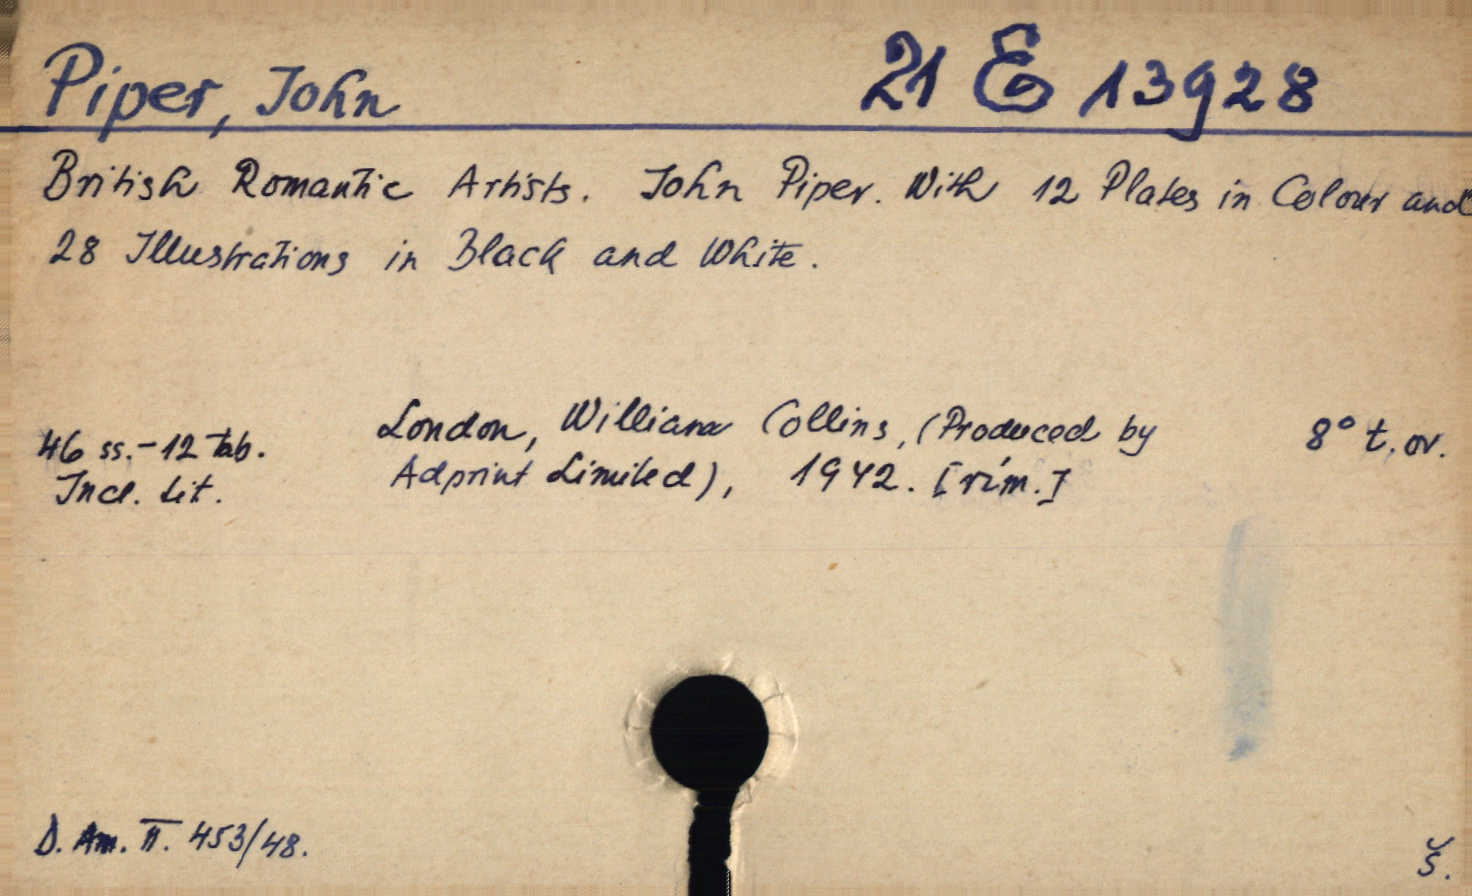 Piper, John 21 E 13928
British Romantic Artists. John Piper. With 12 Plates in Colour and
28 Illustrations in Black and White.
46 ss. - 12 tab. London, William Collins, (Produced by 8° t. ov.
Incl. tit. Adprint Limited), 1942. [rím.]
D. Am. II. 453/48. Š.